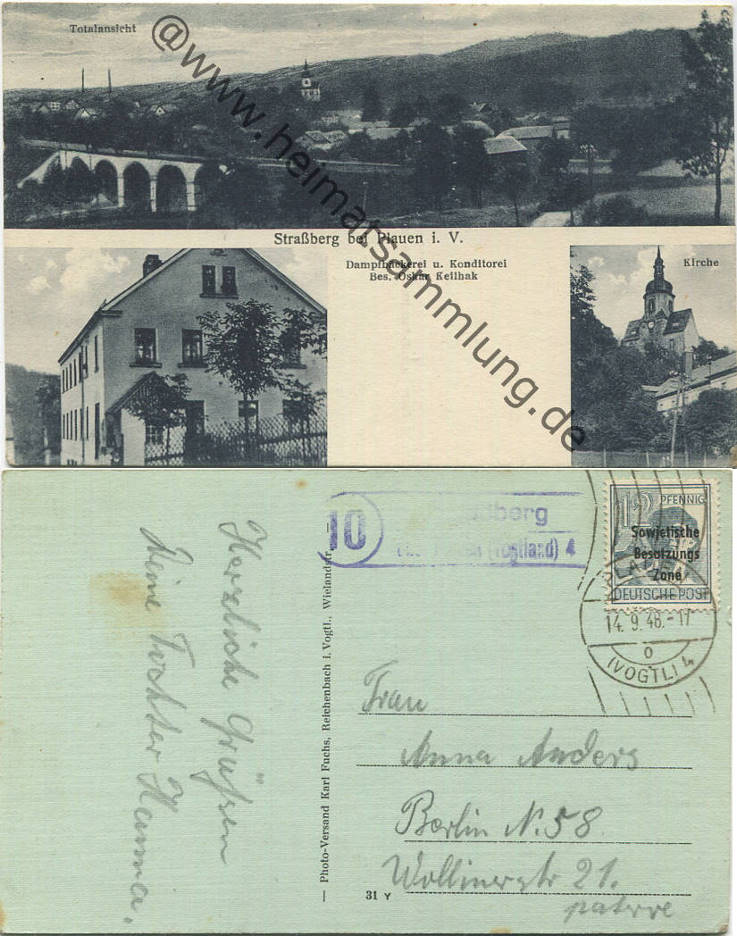 Totalansicht
@www.heimatsammlung.de
Straßberg bei Plauen i. V.
Dampfbäckerei u. Konditorei
Bes. Oskar Keilhak
Kirche
Herzliche Grüßen
Deine Tochter Hanna.
Photo-Versand Karl Fuchs, Reichenbach i. Vogtl., Wielandstr.
10
(Vogtland) 4
12 PFENNIG
Sowjetische
Besatzungs
Zone
DEUTSCHE POST
PLAUEN
14.9.48.-17
o
(VOGTL) 4
Frau
Anna Anders
Berlin N.58
Wollinerstr 21.
paterre
31 Y